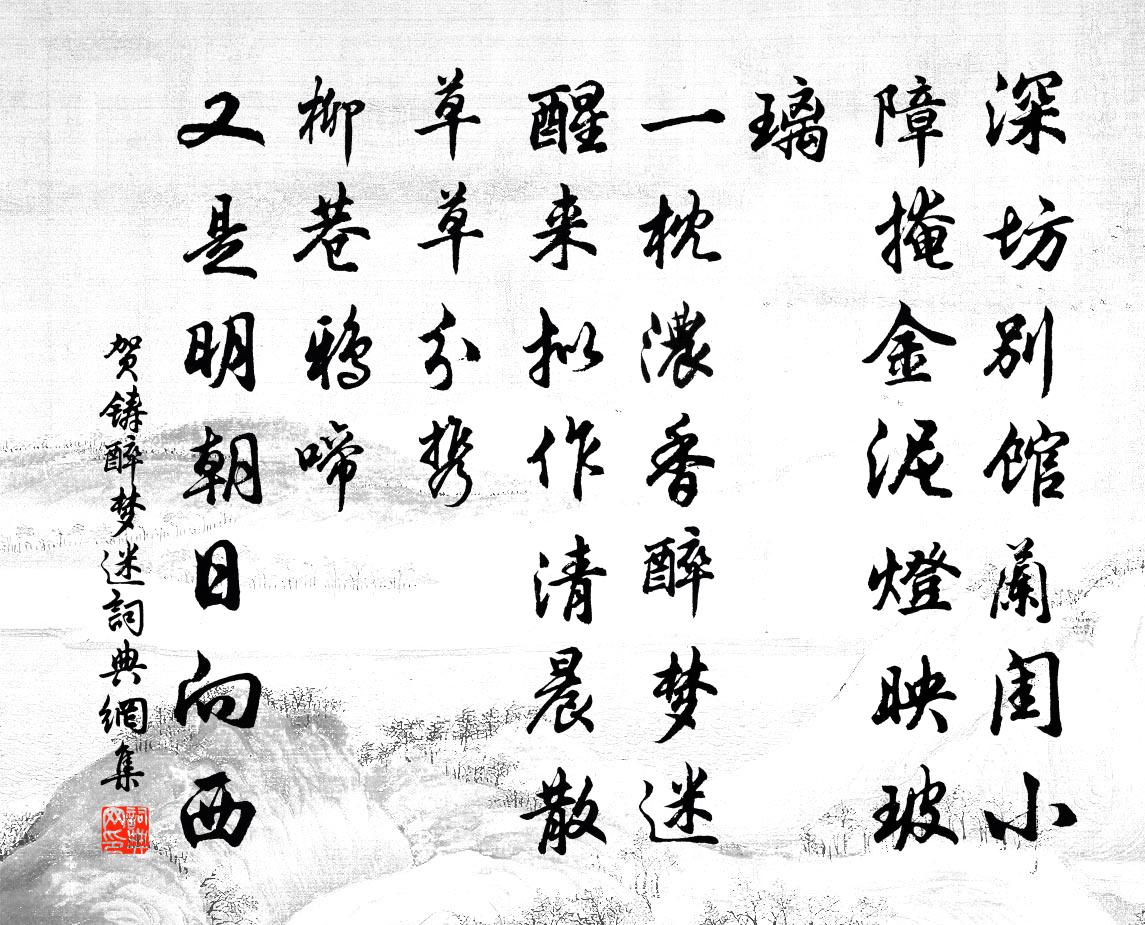 深坊别馆蘭闺小
障掩金泥燈映玻
璃
一枕濃香醉梦迷
醒来拟作清晨散
草草分携
柳巷鴉啼
又是明朝日向西
贺铸醉梦迷詞典網集